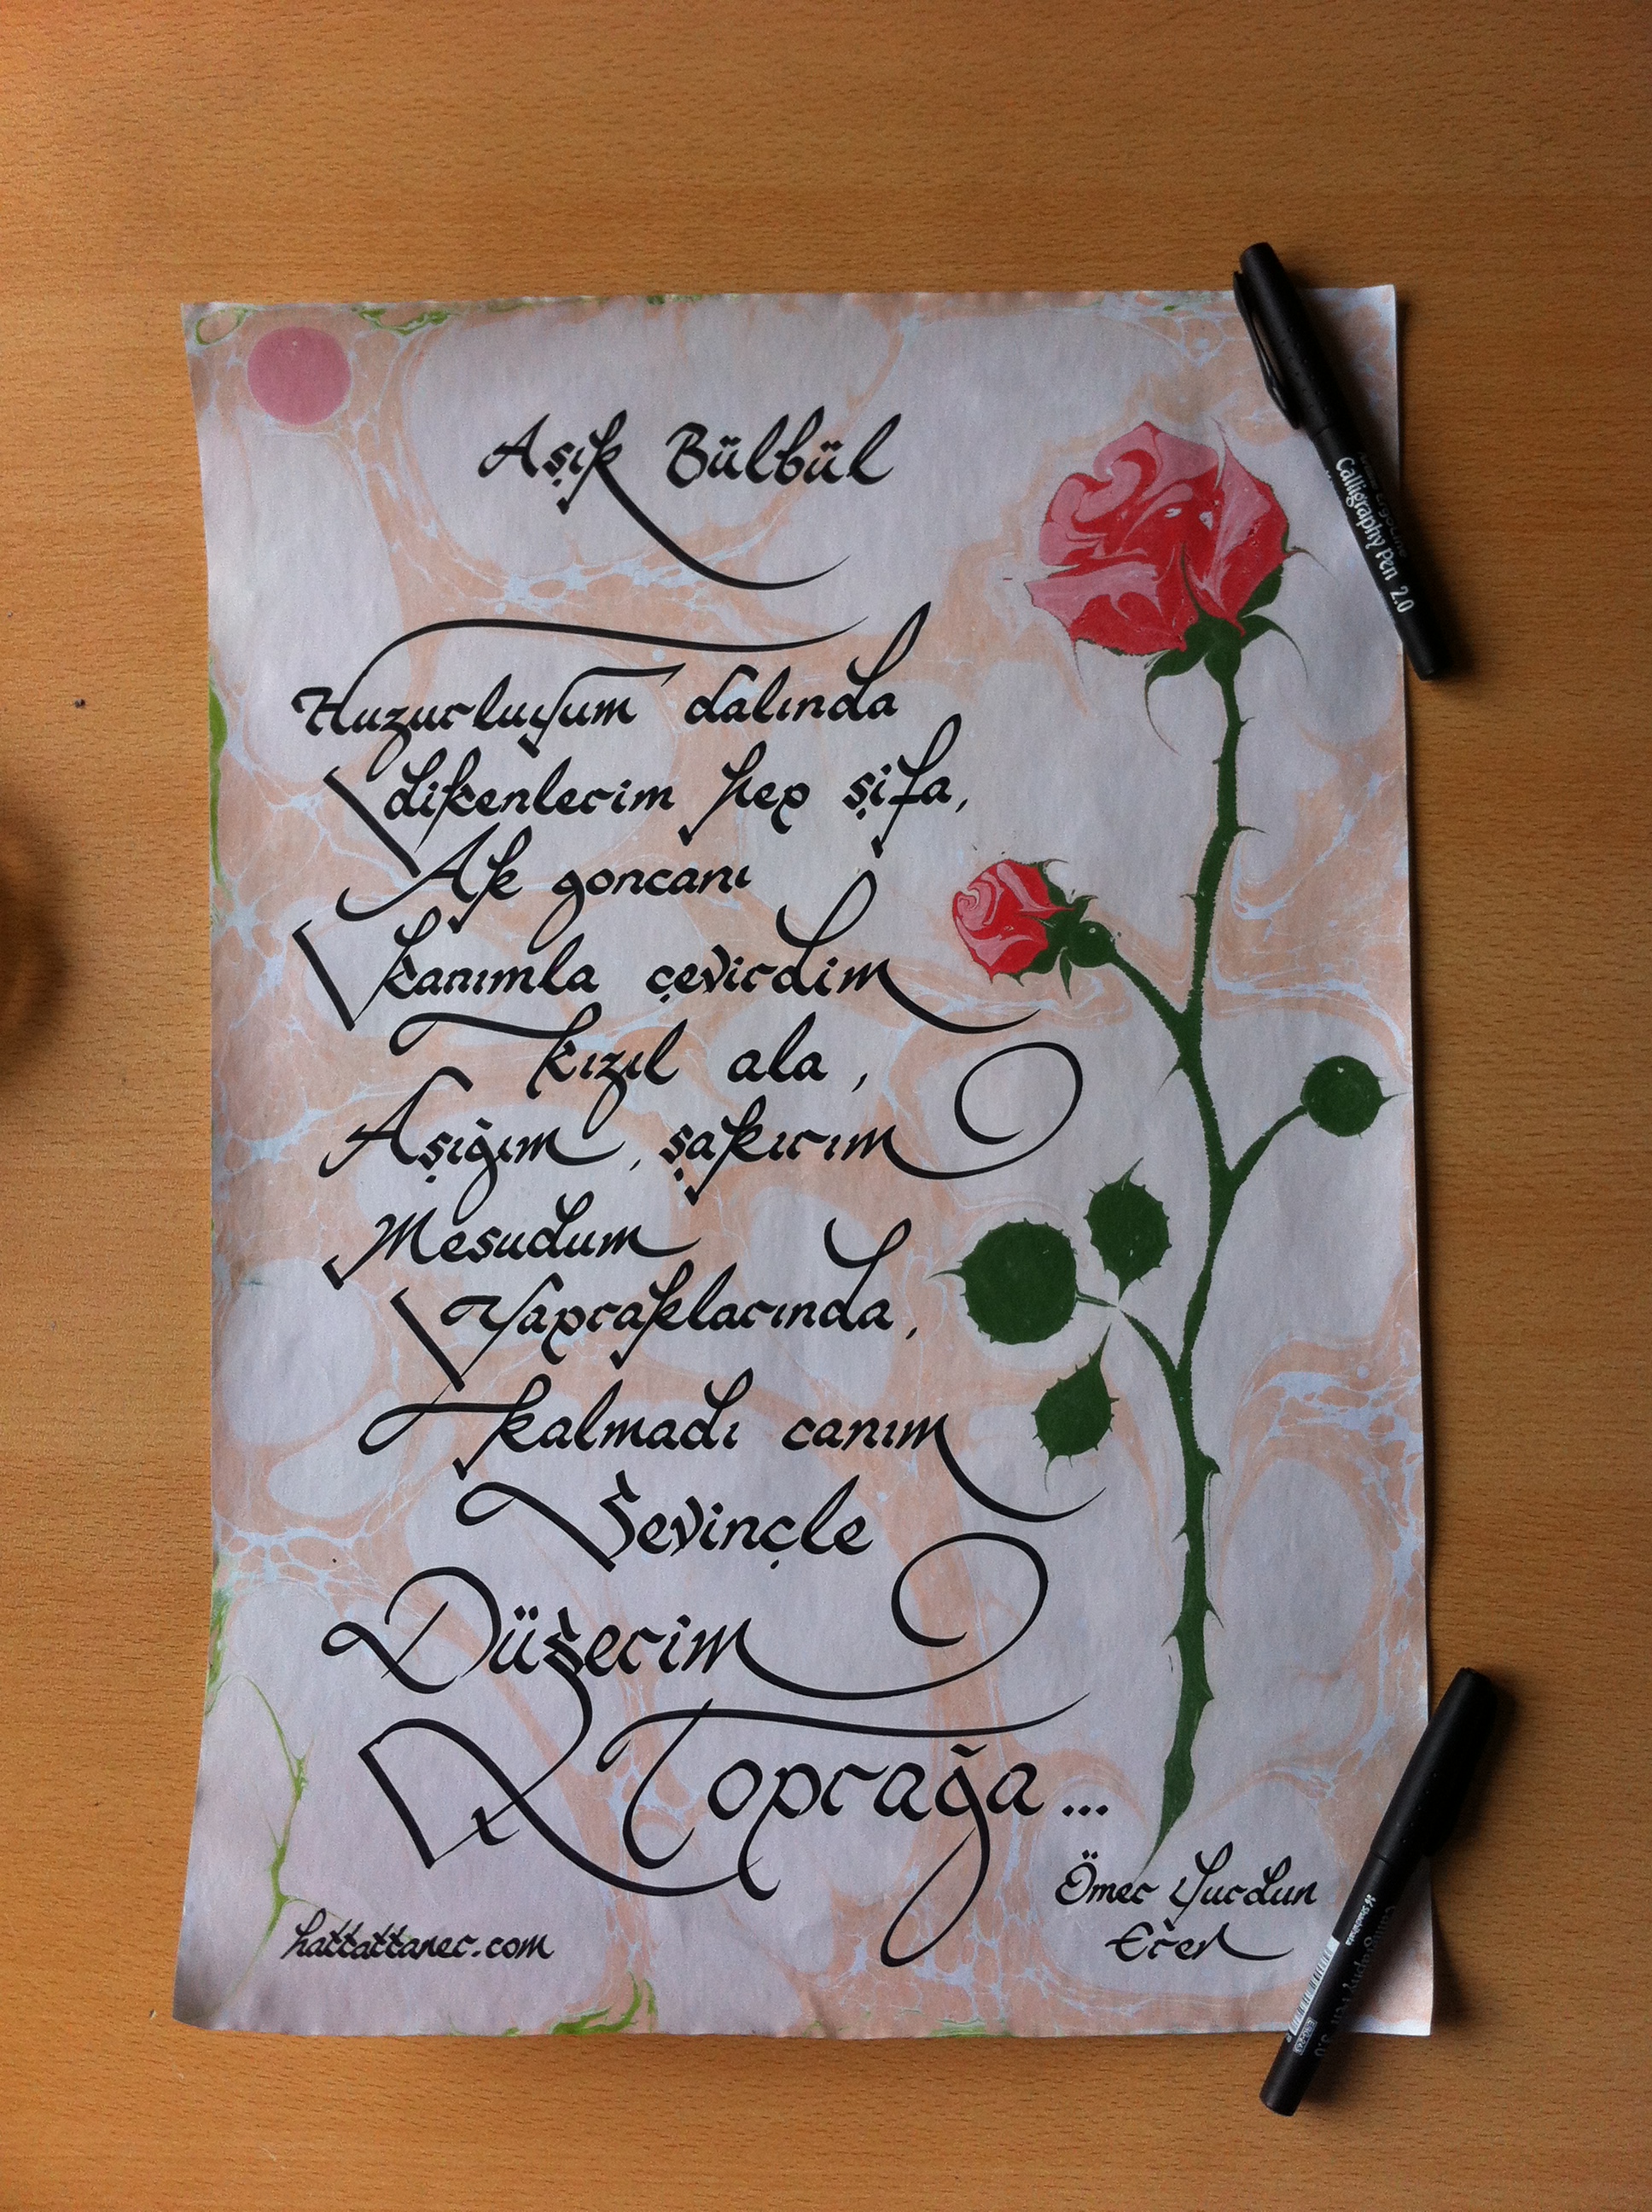 Aşık Bülbül
Huzurluyum dalında
dikenlerim hep şifa,
Ak goncanı
kanımla çevirdim
kızıl ala,
Aşığım, şakırım
Mesudum
Yapraklarında,
kalmadı canım
Sevinçle
Düşerim
Toprağa...
Ömer Yurdun
Eren
hattattaner.com
Calligraphy Pen 2.0
Calligraphy Pen 3.0